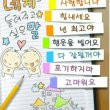 내게
들려주고
싶은 말
사랑합니다
힘내세요
넌 최고야
행운을 빌어요
다 잘될거야
포기하지마
고마워요